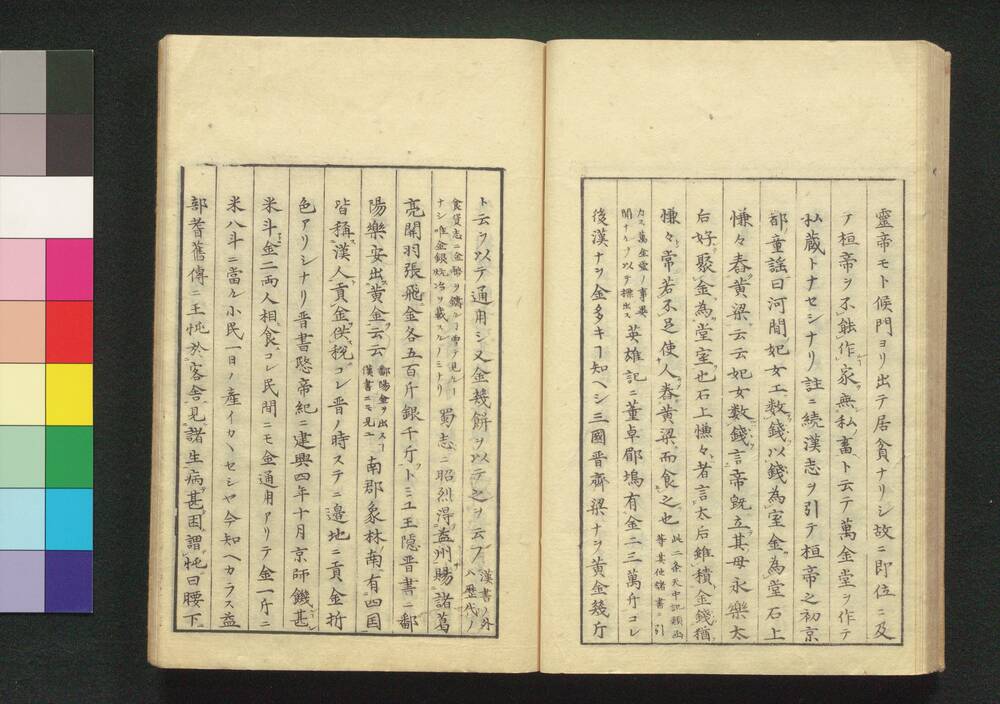 靈帝モト候門ヨリ出テ居貪ナリシ故ニ即位ニ及
ア桓帝ヲ不能作家無私畜ト云テ萬金堂ヲ作テ
私蔵トナセシナリ註ニ続漢志ヲ引テ桓帝之初京
都童謡曰河間妃女工数錢以錢為室金為堂石上
慊々舂黄梁云云妃女数錢言帝既立其母永樂太
后好聚金為堂室也石上慊々者言太后雖積金錢猶
慊々常若不足使人舂黄梁而食之也此二条天中記類函等其他諸書ニ引
カス萬金堂ノ事異聞ナルヲ以テ標出ス英雄記ニ董卓郿塢有金二三萬斤コレ
後漢ナヲ金多キヿ知ヘシ三國晋齊梁ナヲ黄金幾斤
ト云ヲ以テ通用シ又金幾餅ヲ以テ之ヲ云フ漢書ノ外ハ歴代ノ
食貨志ニ金幣ヲ鑄ルノ事ナシ唯金銀坑冶ヲ載スルノミナリ蜀志ニ昭烈得益州賜諸葛
亮関羽張飛金各五百斤銀千斤トミユ王隠晋書ニ鄱
陽樂安出黄金云云鄱陽金ヲ出スヿ漢書ニモ見ユ南郡象林南有四国
皆稱漢人貢金供税コレ晋ノ時ステニ邉地ニ貢金折
色アリシナリ晋書愍帝紀ニ建興四年十月京師饑甚
米斗金二両人相食コレ民間ニモ金通用アリテ金一斤ニ
米八斗ニ當ル小民一日ノ産イカヽセシヤ今知ヘカラス益
部耆舊傳ニ王忳於客舎見諸生病甚困謂忳曰腰下